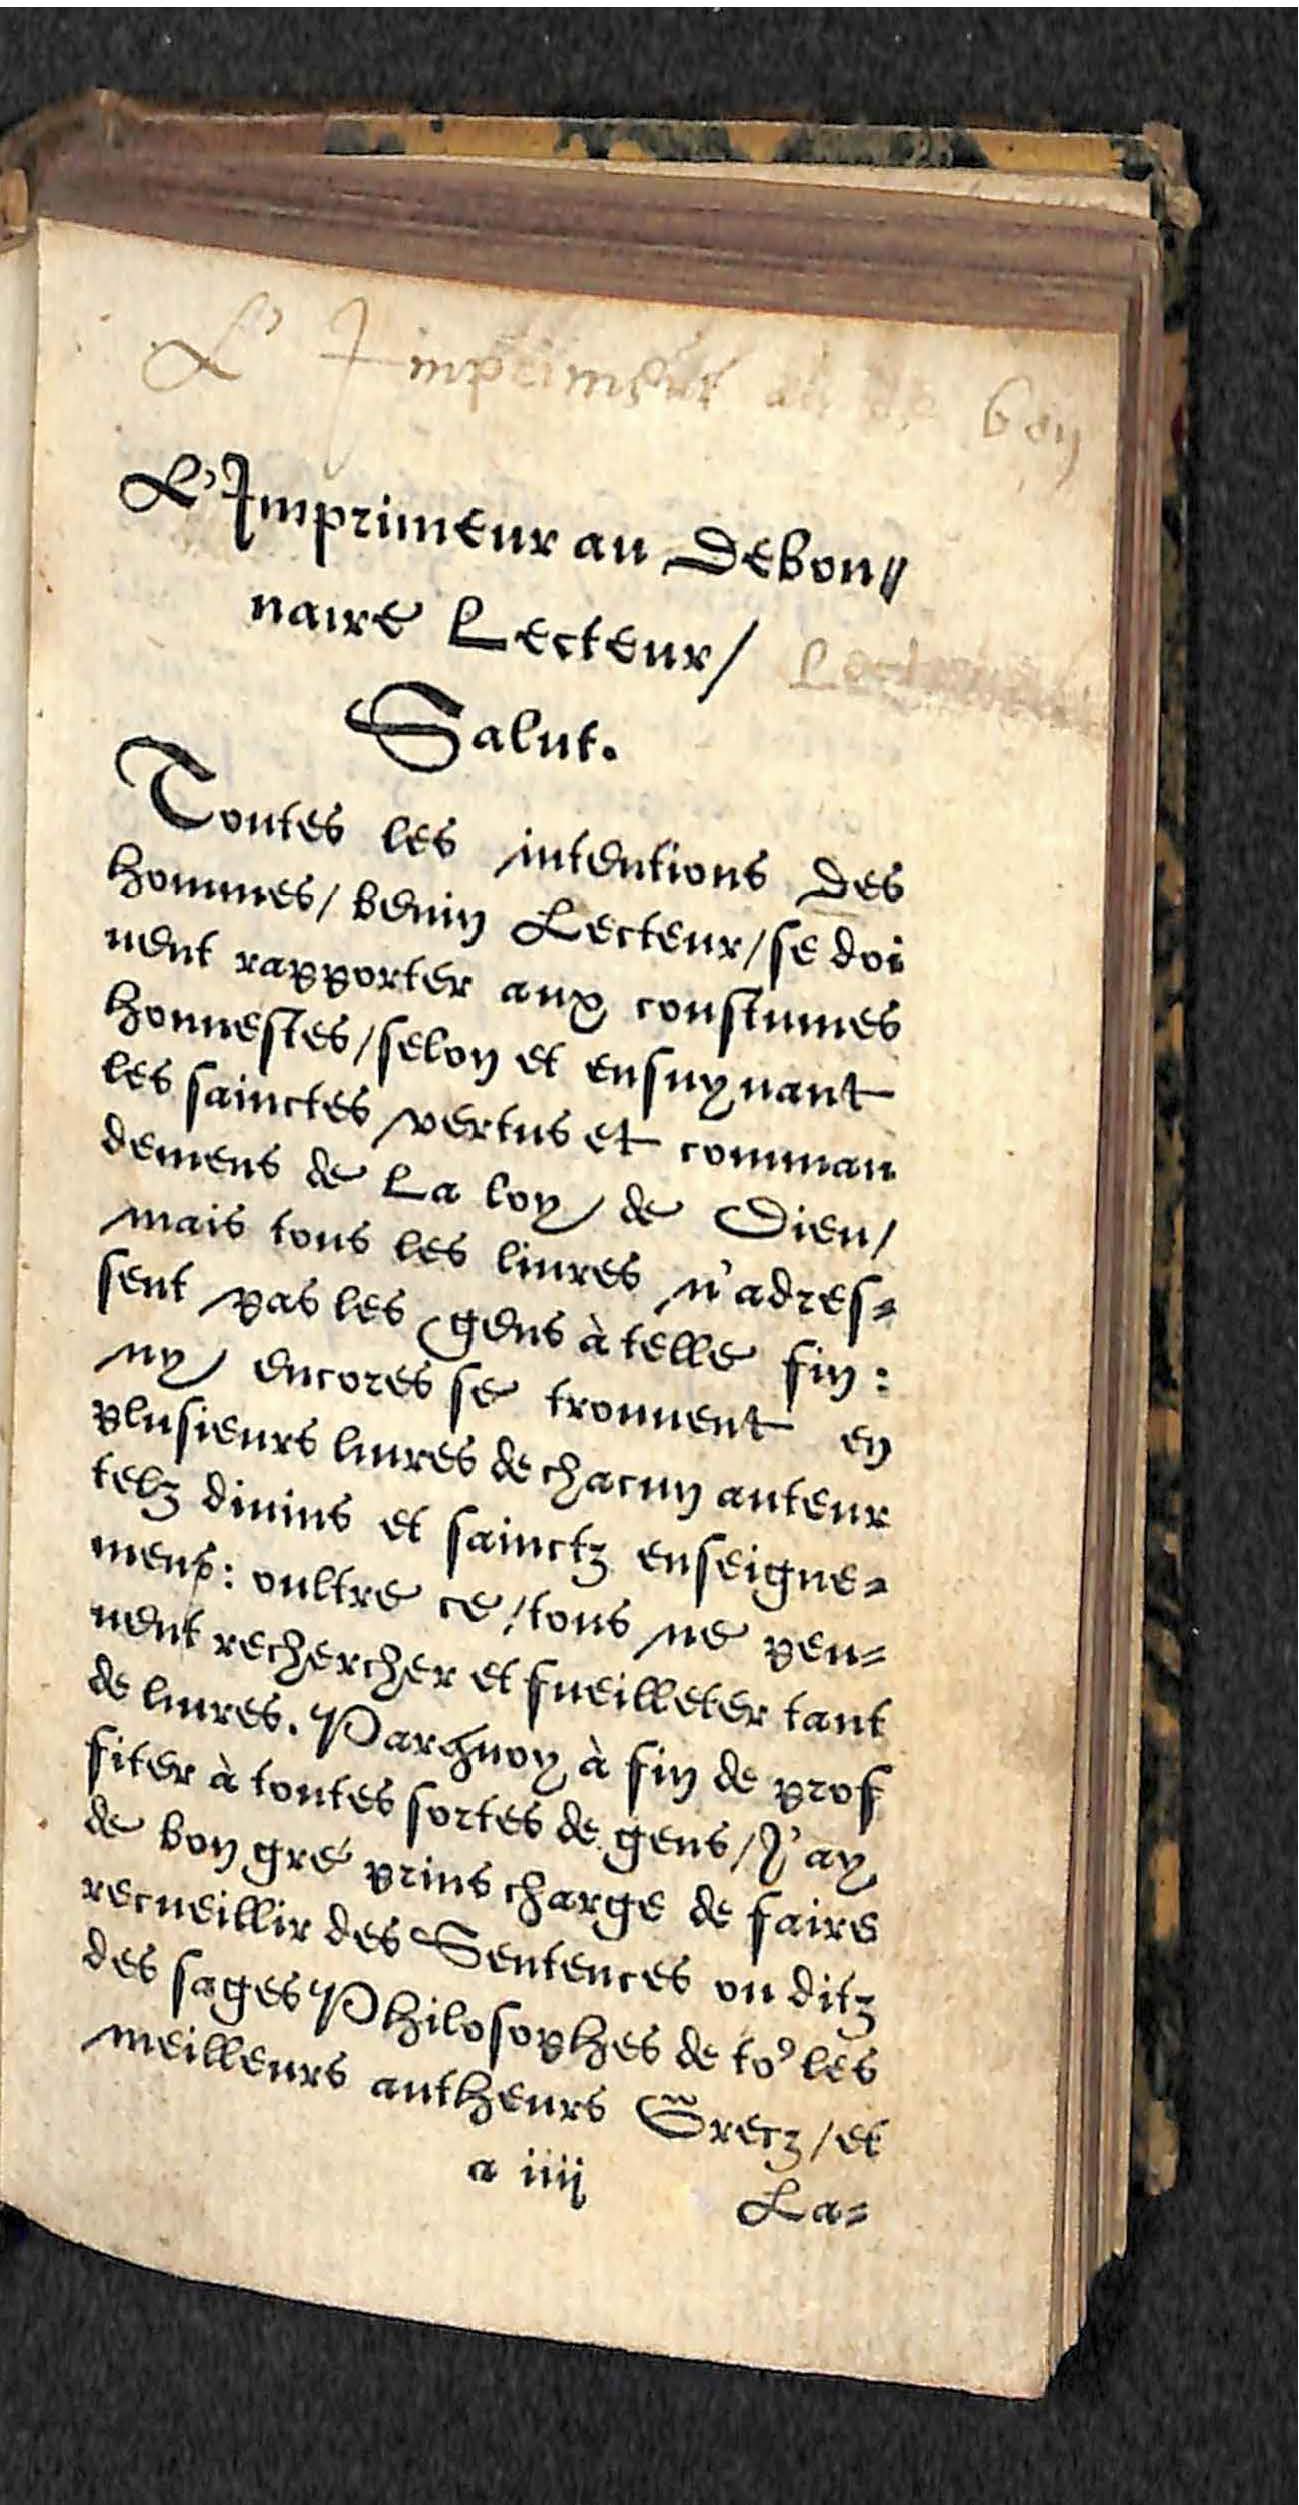 L' Imprimeur au de bon
L'Imprimeur au Debon⸗
naire Lecteur/
Salut.
Toutes les intentions des
hommes/ benin Lecteur/ se doi
uent rapporter aux coustumes
honnestes/ selon et ensuyuant
les sainctes vertus et comman
demens de La loy de Dieu/
mais tous les liures n'adres⸗
sent pas les gens à telle fin:
ny encores se trouuent en
plusieurs liures de chacun auteur
telz diuins et sainctz enseigne⸗
mens: oultre ce/ tous ne peu⸗
uent rechercher et fueilleter tant
de liures. Parquoy à fin de prof
fiter à toutes sortes de gens/ J'ay
de bon gré prins charge de faire
recueillir des Sentences ou ditz
des sages Philosophes de toꝰ les
meilleurs autheurs Grecz/ et
a iiij
La⸗